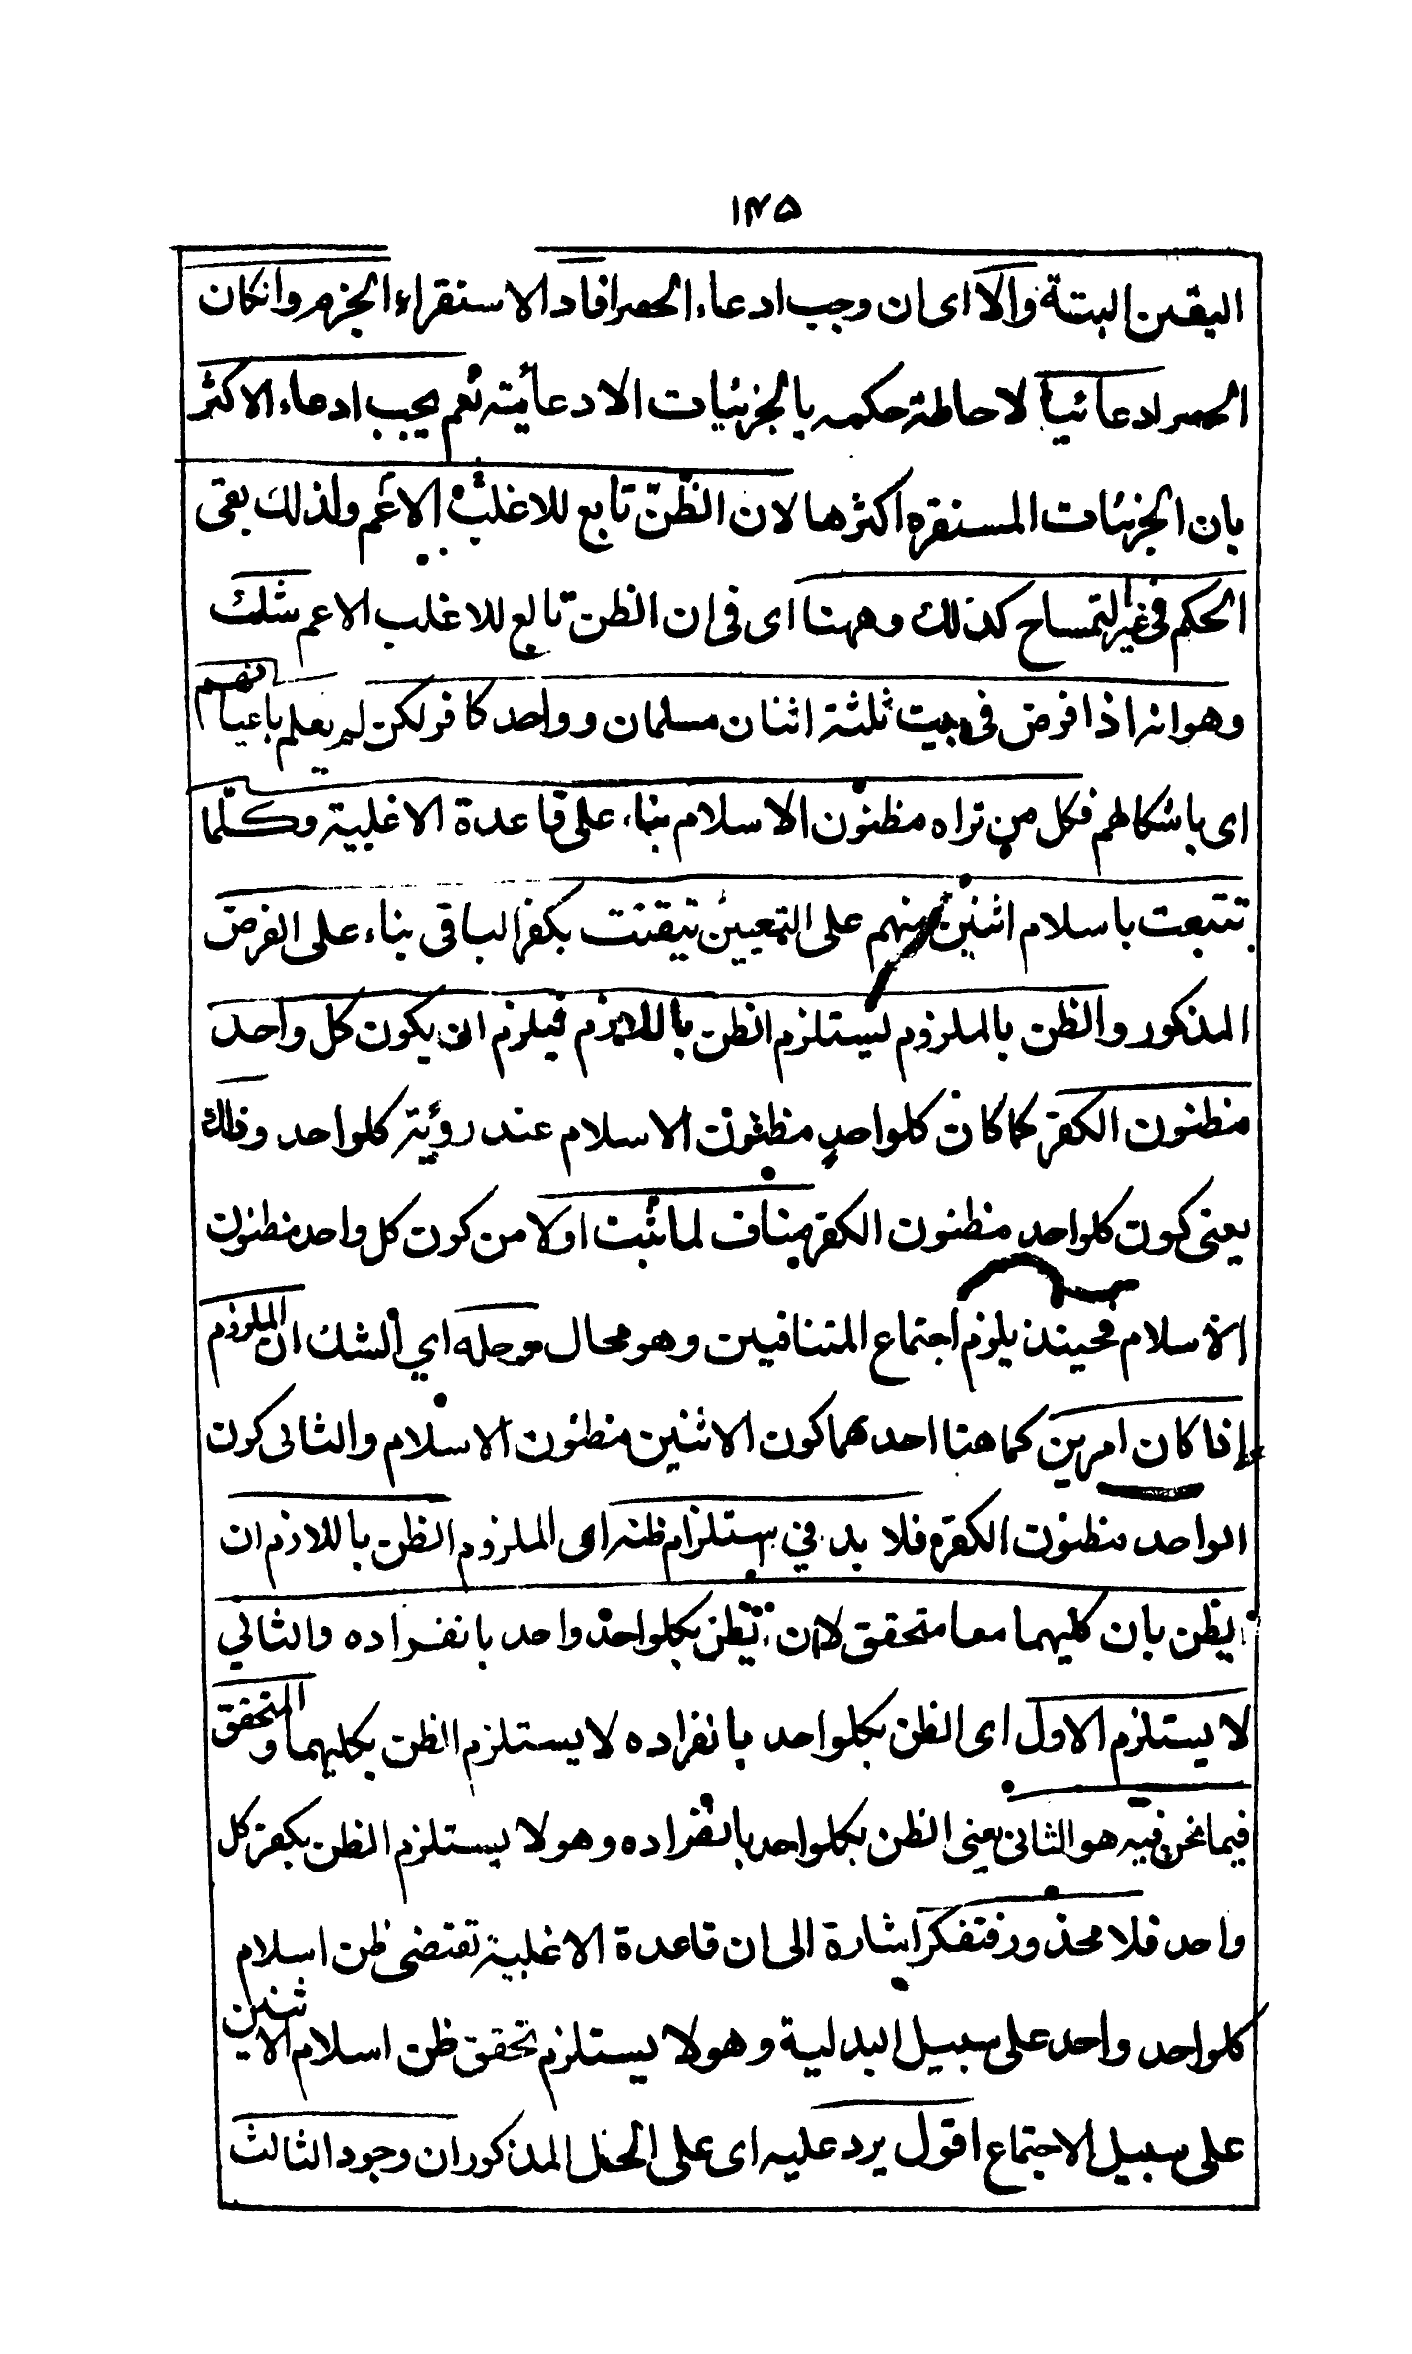 ۱۴۵
اليقين البتة والا اى ان وجب ادعاء الحصر افاد الاستقراء الجزم وانكان
الحصر ادعائيا لاحاطة حكمه بالجزئيات الادعائية نعم يجب ادعاء الاكثر
بان الجزئيات المستقرءه اكثرها لان الظنّ تابع للاغلب الاعم ولذلك بقى
الحكم فى غير التمساح كذلك وههنا اى فى ان الظن تابع للاغلب الاعم شك
وهو انه اذا فرض فى بيت ثلثة اثنان مسلمان وواحد كافر لكن لم يعلم باعيانهم
اى باشكالهم فكل من تراه مظنون الاسلام بناء على قاعدة الاغلبية وكلّما
تتبعت باسلام اثنين منهم على التعيين تيقنت بكفر الباقى بناء على الفرض
المذكور والظن بالملزوم يستلزم الظن باللازم فيلزم ان يكون كل واحد
مظنون الكفر كما كان كلواحد مظنون الاسلام عند روٴية كلواحد وذلك
يعنى كون كلواحد مظنون الكفر مناف لما ثبت اولا من كون كل واحد مظنون
الاسلام فحينئذ يلزم اجتماع المتنافيين وهو محال وحله اي الشك ان الملزوم
إذا كان امرين كما هنا احدهما كون الاثنين مظنون الاسلام والثانى كون
الواحد مظنون الكفر فلا بد في استلزام ظنه اى الملزوم الظن باللازم ان
يظن بان كليهما معا متحقق لا ان يظن بكلواحد واحد بانفراده والثاني
لا يستلزم الاول اى الظن بكلواحد بانفراده لا يستلزم الظن بكليهما والمتحقق
فيما نحن فيه هو الثانى يعنى الظن بكلواحد بانفراده وهو لا يستلزم الظن بكفر كل
واحد فلا محذور فتفكر اشارة الى ان قاعدة الاغلبية تقتضى ظن اسلام
كلواحد واحد على سبيل البدلية وهو لا يستلزم تحقق ظن اسلام الاثنين
على سبيل الاجتماع اقول يرد عليه اى على الحل المذكور ان وجود الثالث